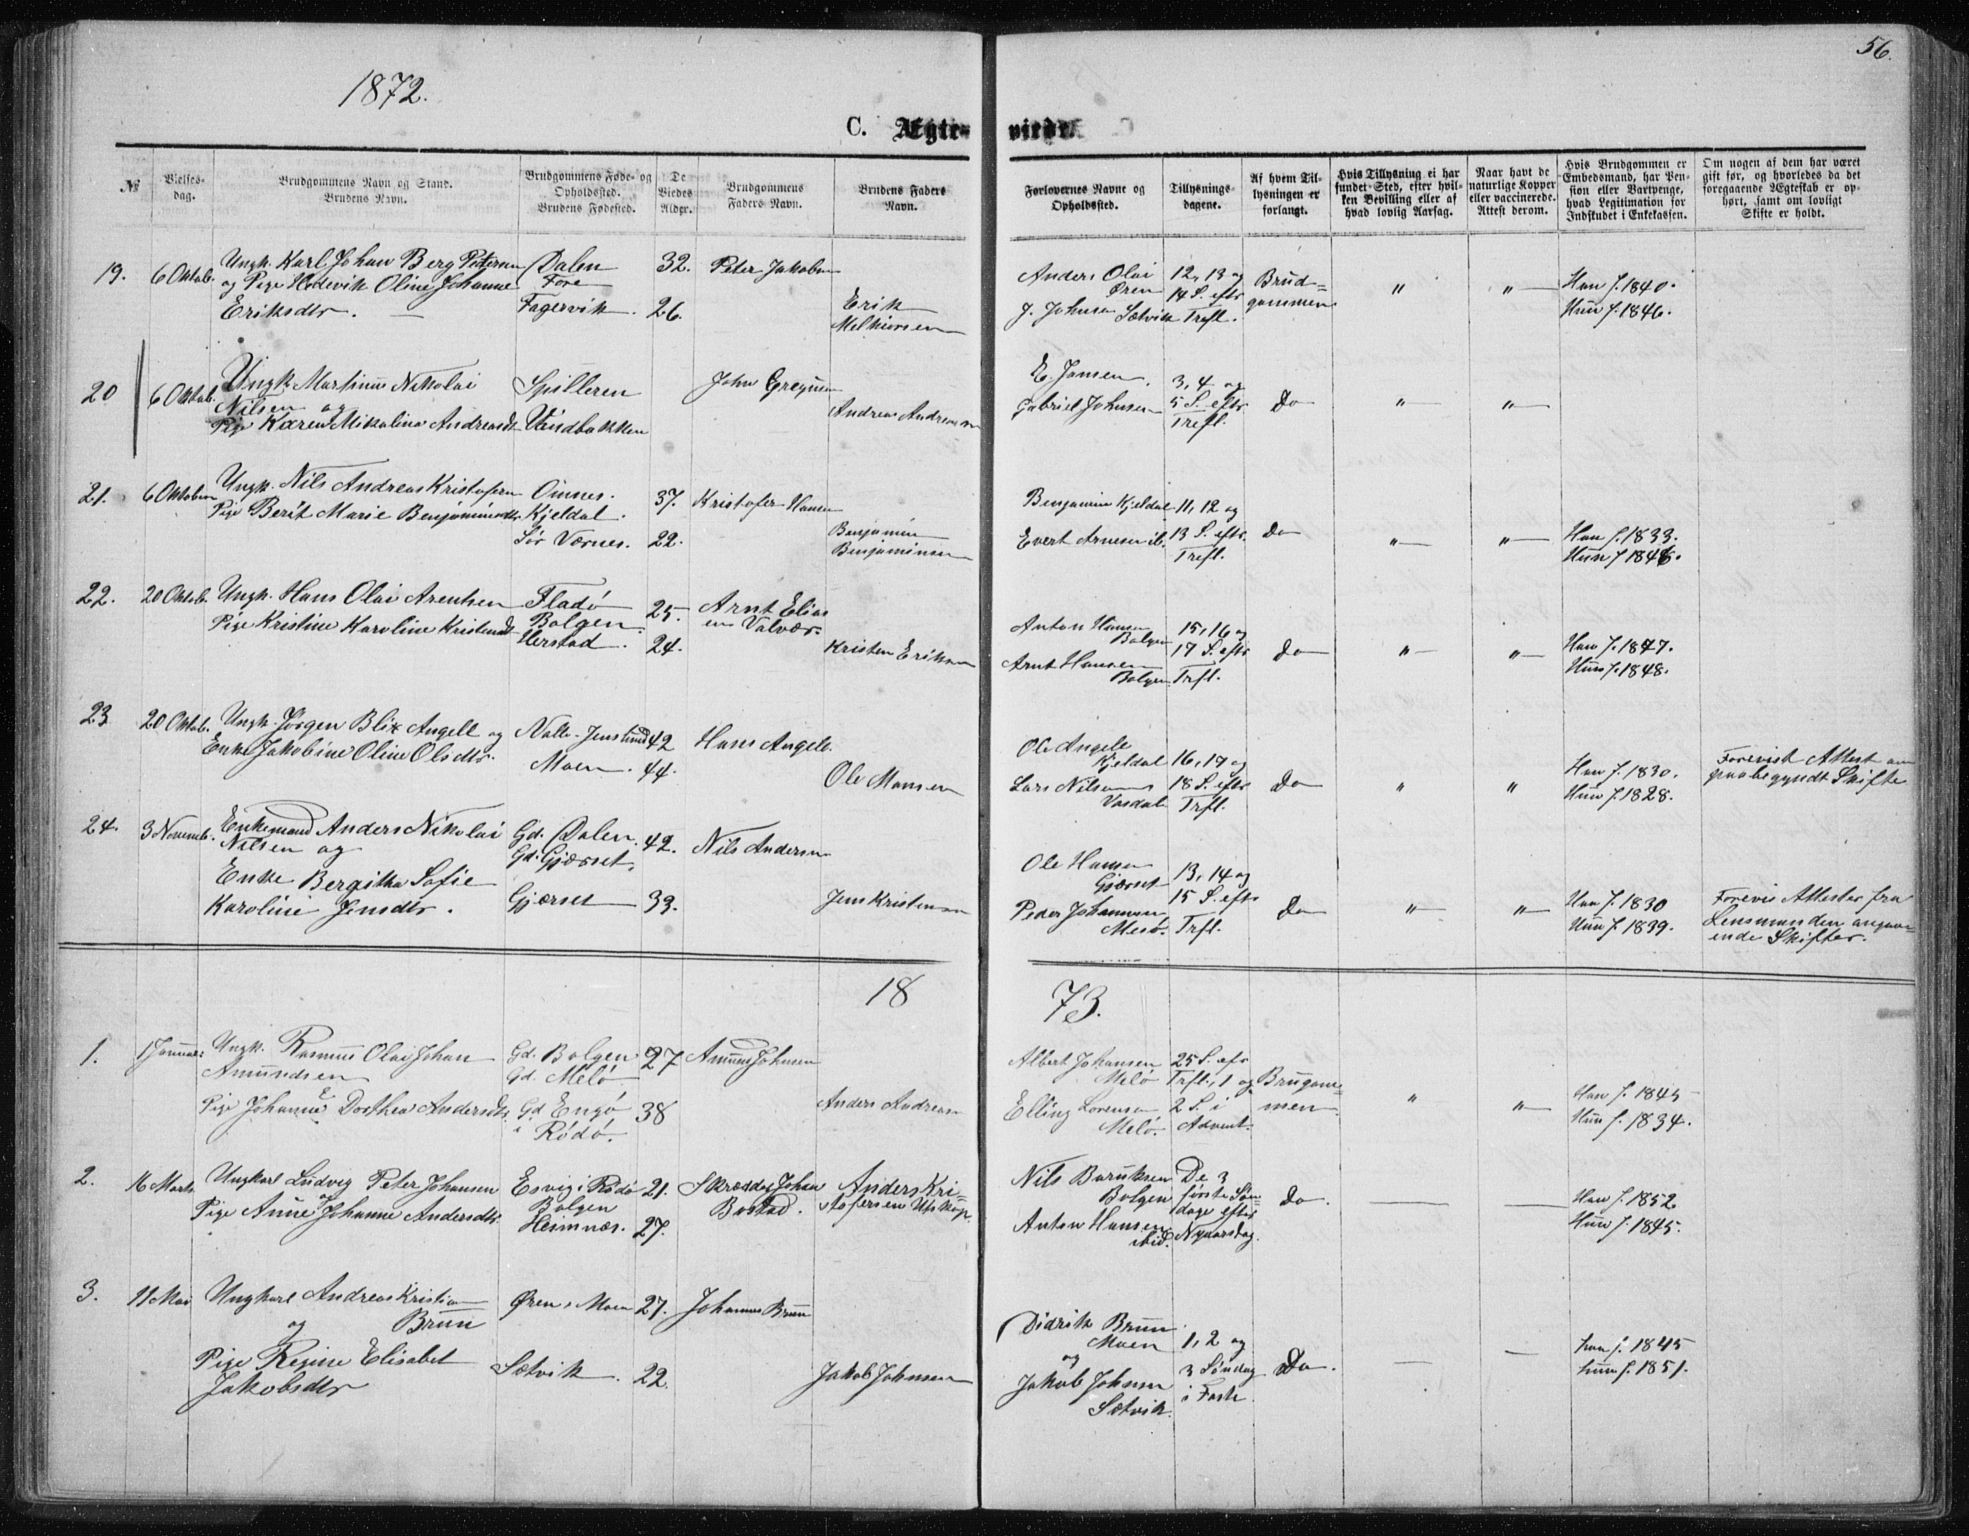 56.
1872.
C. Ægte-viede.
№
Vielses-
dag.
Brudgommens Navn og Stand.
Brudens Navn.
Brudgommens Føde- og
Opholdssted.
Brudens Fødested.
De
Viedes
Alder.
Brudgommens
Faders Navn.
Brudens Faders
Navn.
Forlovernes Navne og
Opholdssted.
Tillysnings-
dagene.
Af hvem Til-
lysningen er
forlangt.
Hvis Tillysning ei har
fundet Sted, efter hvil-
ken Bevilling eller af
hvad lovlig Aarsag.
Naar havt de
naturlige Kopper
eller vaccinerede.
Attest derom.
Hvis Brudgommen er
Embedsmand, har Pen-
sion eller Vartpenge,
hvad Legitimation for
Indskudet i Enkekassen.
Om nogen af dem har været
gift før, og hvorledes da det
foregaaende Ægteskab er op-
hørt, samt om lovligt
Skifte er holdt.
19. 6 Oktob.
Ungk. Karl Johan Berg Petersen
og Pige Hedevik Oline Johanne
Eriksdtr.
Dalen
Fore
Fagervik.
32.
26.
Peter Jakobsen
Erik
Melkiorsen
Anders Olai
Ören
J. Johnsen Sætvik
12, 13 og
14 S. eftr
Trefl.
Brud=
gommen
" "
Han f. 1840.
Hun f. 1846.
20 6 Oktob.
Ungk. Martinus Nikolai
Nilsen og
Pige Karen Mikalina Andreasdt
Spilleren
Vindbakken
John Gregusen
Andreas Andreassen
E. Jansen.
Gabriel Johnsen
3, 4 og
5 S. eftr
Trefl.
Do
" "
21. 6 Oktober
Ungk. Nils Andreas Kristofersen
Pige Berit Marie Benjaminsdtr
Oinnes.
Kjeldal.
Sör Værnes.
37.
22.
Kristofer Hansen
Benjamin
Benjaminsen
Benjamin Kjeldal
Evert Arnesen ib.
11, 12 og
13 S. eftr.
Trefl.
Do
" "
Han f. 1833.
Hun f. 1848.
22. 20 Oktob.
Ungk. Hans Olai Arentsen
Pige Kristine Karoline Kristensdt
Fladö
Bolgen.
Herstad.
25
24.
Arnt Elias
en Valvær.
Kristen Eriksen
Anton Hansen
Bolgen
Arnt Hansen
Bolgen
15, 16 og
17 S. eftr
Trfl.
Do
" "
Han f. 1847.
Hun f. 1848.
23 20 Oktob.
Ungk. Jörgen Blix Angell og
Enke Jakobine Oline Olsdtr.
Moen.
42
44.
Hans Angell
Ole Monsen
Ole Angell
Kjeldal
Lars Nilsen
Vasdal
16, 17 og
18 S. eftr
Trfl.
Do
" "
Han f. 1830.
Hun f. 1828.
Forevist Attest om
paabegyndt Skifte
24. 3 Novemb.
Enkemand Anders Nikolai
Nilsen og
Enke Bergitha Sofie
Karoline Jensdtr.
Gd. Dalen.
Gd. Gjærset.
Gjærset
42.
33.
Nils Andersen
Jens Kristensen
Ole Hansen
Gjærset
Peder Johannesen
Melö.
13, 14 og
15 S. eftr
Trfl.
Do
" "
Han f. 1830
Hun f. 1839.
Forevis Attester fra
Lensmanden angaa=
ende Skifter.
18 73.
1. 1 Januar
Ungk. Rasmus Olai Johan
Amundsen
Pige Johanne E Dorthea Andersdtr.
Gd. Bolgen
Gd. Melö
Gd Engö
i Rödö.
27
38
Amund Johnsen
Anders Andreasen
Albert Johansen
Melö
Elling Lorensen
Melö.
25 S. eftr
Trfl., 1 og
2 S. i
Advent.
Brugom=
men.
" "
Han f. 1845
Hun f. 1834.
2. 16 Marts
Ungkarl Ludvig Peter Johansen
og
Pige Anne Johanne Andersdtr.
Esvig i Rödö
Bolgen
Heimnæs.
21.
27.
Skrædder Johan
Bostad.
Anders Kri=
stofersen Utskarp.
Nils Baruksen
Bolgen
Anton Hansen
ibid.
De 3
første Søn=
dage efter
Nyaarsdag.
Do.
Han f. 1852
Hun f. 1845.
3. 11 Mai
Ungkarl Andreas Kristian
og Brun
Pige Regine Elisabet
Jakobsdtr
Øren, Moen
Sætvik.
27.
22.
Johannes Brun
Jakob Johnsen
Didrik Brun
Moen
og
Jakob Johnsen
Sætvik.
1, 2 og
3 Söndag
i Faste.
Do.
han f. 1845
hun f. 1851.